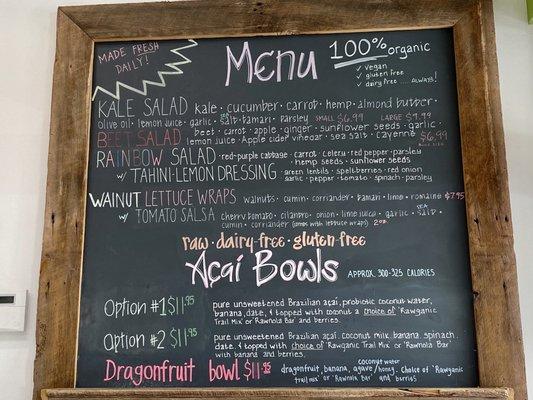 MADE FRESH
DAILY!
Menu
100% organic
✓ vegan
✓ gluten free
✓ dairy free .... ALWAYS!
KALE SALAD kale · cucumber · carrot · hemp · almond butter ·
olive oil · lemon juice · garlic · sea salt · tamari · parsley SMALL $6.99 LARGE $9.99
BEET SALAD beet · carrot · apple · ginger · sunflower seeds · garlic ·
lemon juice · Apple cider vinegar · sea salt · cayenne $6.99
RAINBOW SALAD red·purple cabbage · carrot · celery · red pepper · parsley
hemp seeds · sunflower seeds
w/ TAHINI-LEMON DRESSING green lentils · speltberries · red onion
garlic · pepper · tomato · spinach · parsley
WALNUT LETTUCE WRAPS walnuts · cumin · corriander · tamari · lime · romaine $7.95
w/ TOMATO SALSA cherry tomato · cilantro · onion · lime juice · garlic · sea salt ·
cumin · corriander (comes with lettuce wraps) 2oz.
raw · dairy-free · gluten-free
Açai Bowls APPROX. 300-325 CALORIES
Option #1 $11.95 pure unsweetened Brazilian açai, probiotic coconut water,
banana, date, & topped with coconut & choice of "Rawganic
Trail Mix or Rawnola Bar" and berries.
Option #2 $11.95 pure unsweetened Brazilian açai, coconut milk, banana, spinach,
date, & topped with choice of "Rawganic Trail Mix" or "Rawnola Bar"
with banana and berries.
Dragonfruit bowl $11.95 dragonfruit, banana, agave/honey, coconut water. Choice of "Rawganic
trail mix" or "Rawnola Bar" and berries